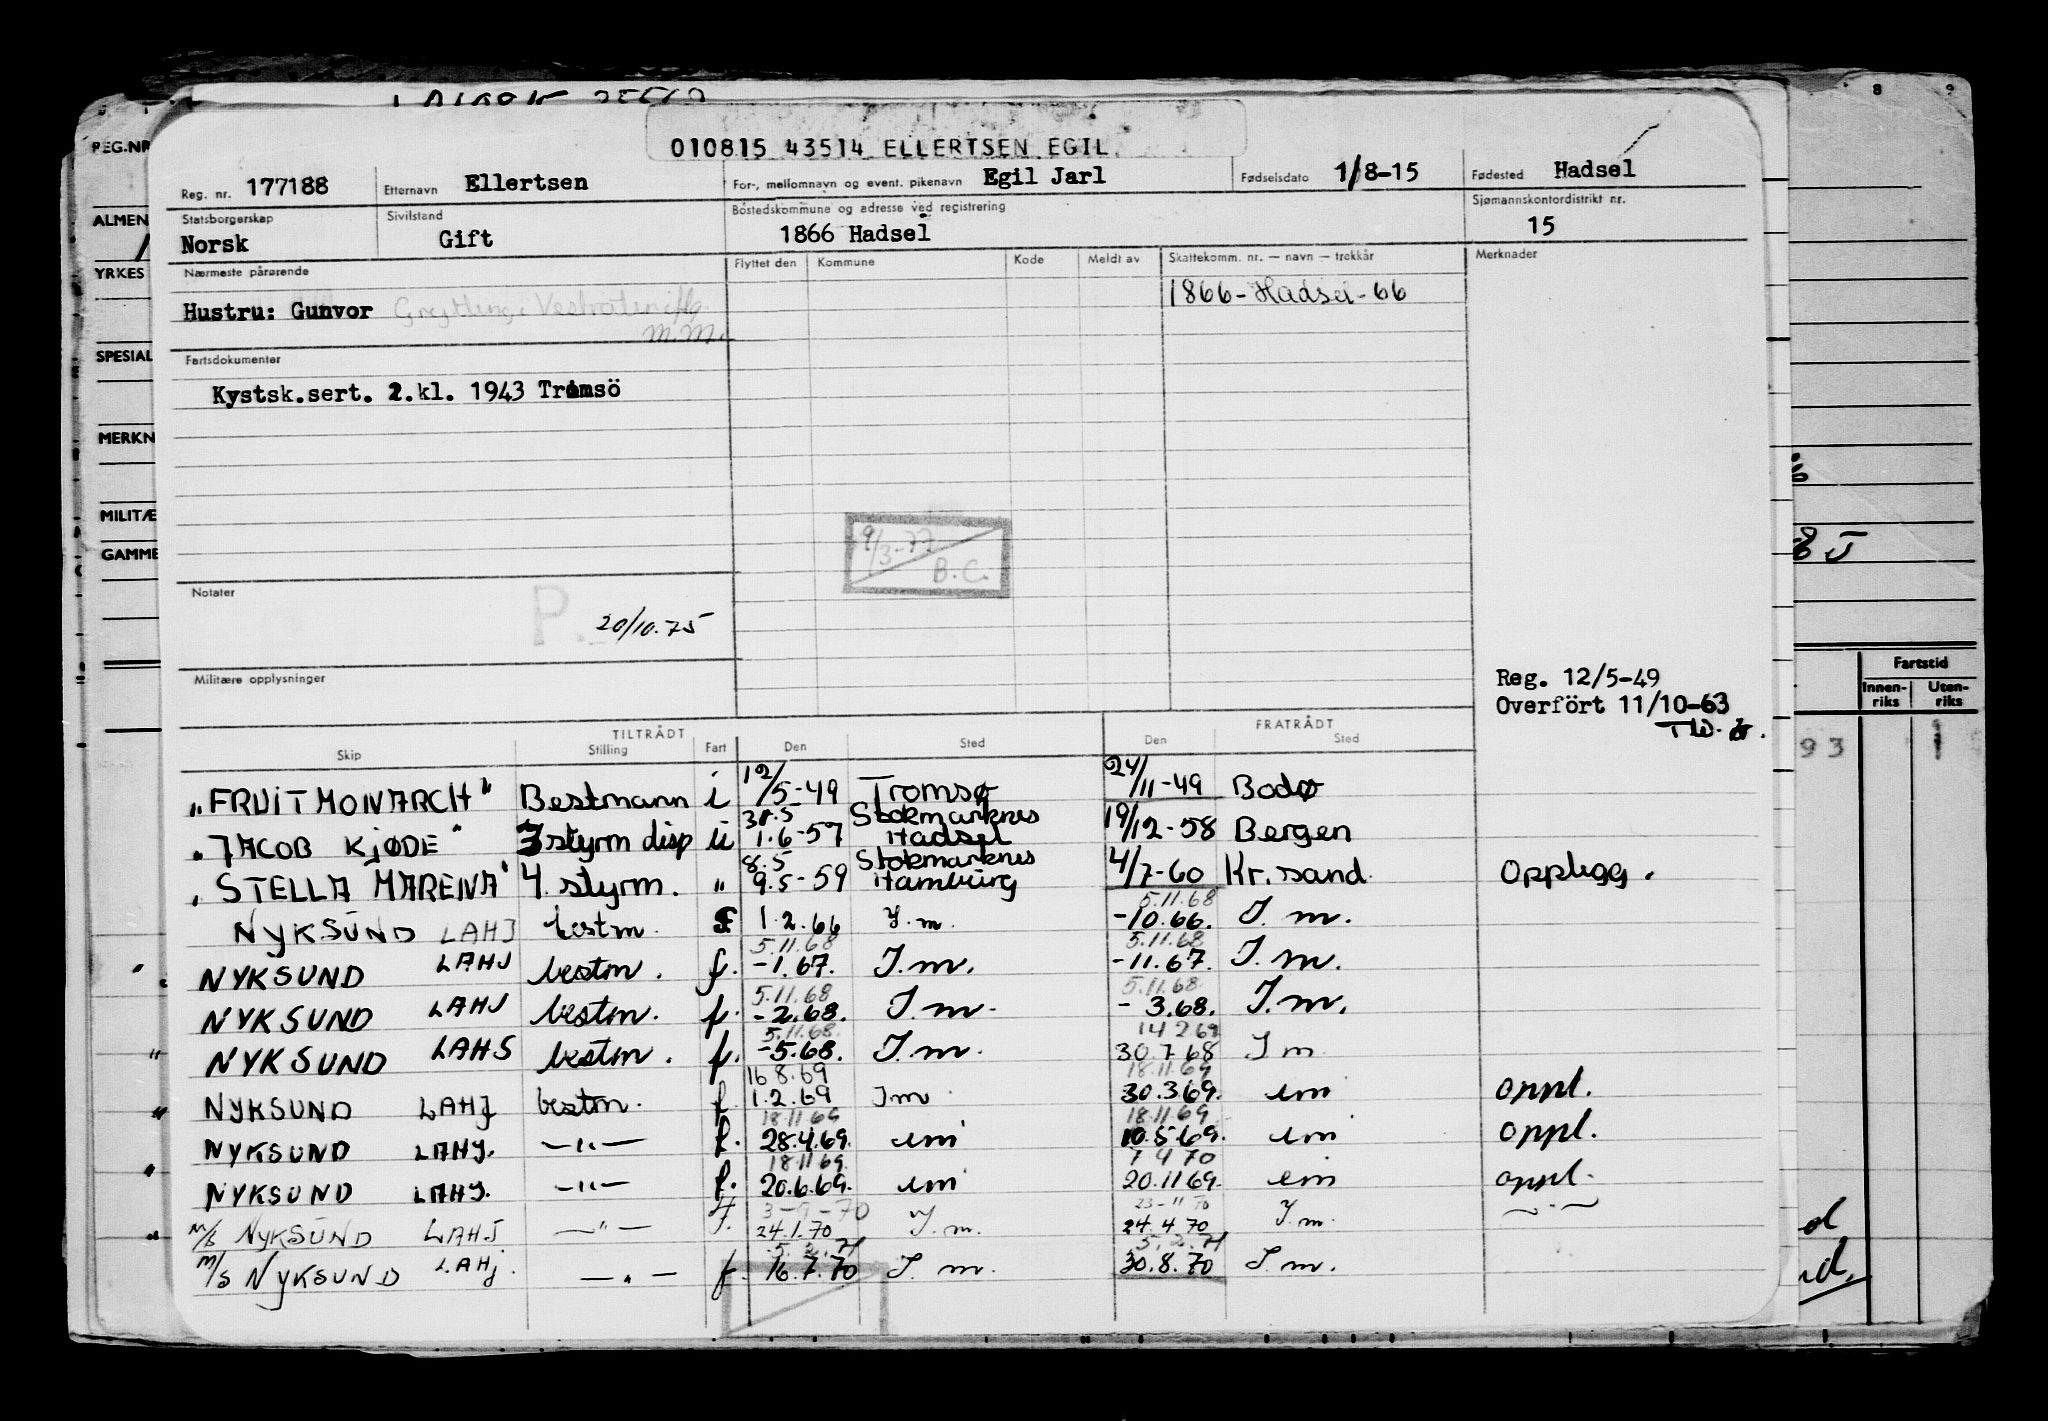 010815 43514 ELLERTSEN EGIL
Reg. nr. 177188 Etternavn Ellertsen For-, mellomnavn og event. pikenavn Egil Jarl Fødselsdato 1/8-15 Fødested Hadsel
Statsborgerskap Norsk Sivilstand Gift Bostedskommune og adresse ved registrering 1866 Hadsel Sjømannskontordistrikt nr. 15
Nærmeste pårørende Flyttet den Kommune Kode Meldt av Skattekomm. nr. — navn — trekkår Merknader
Hustru: Gunvor 1866-Hadsel-66
m.m.
Fartsdokumenter
Kystsk.sert. 2.kl. 1943 Tromsö
9/3-77 B.C.
Notater
P. 20/10.75
Militære opplysninger
Reg. 12/5-49
Overfört 11/10-63
TILTRÅDT FRATRÅDT
Skip Stilling Fart Den Sted Den Sted
"FRUITMONARCH" Bestmann i 12/5-49 Tromsø 24/11-49 Bodø
31.5 Stokmarknes
"JACOB KJØDE" 3 styrm disp u 1.6-57 Hadsel 19/12-58 Bergen
8.5 Stokmarknes
"STELLA MARENA" 4. styrm. " 9.5-59 Hamburg 4/7-60 Kr.sand Opplegg.
5.11.68
NYKSUND LAHJ bestm. f 1.2.66 I.m. -10.66. I.m.
5.11.68 5.11.68
NYKSUND LAHJ bestm. f. -1.67. I.m. -11.67. I.m.
5.11.68 5.11.68
NYKSUND LAHJ bestm. f. -2.68. I.m. - 3.68. I.m.
5.11.68. 14 2 69
NYKSUND LAHJ bestm. f. -5.68. I.m. 30.7 68 I m
16 8.69 18.11.69
NYKSUND LAHJ bestm. f. 1.2.69 Im 30.3.69. im oppl.
18.11 69 18.11.69
NYKSUND LAHJ. —"— f. 28.4.69. im 10.5.69. im oppl.
18.11 69. 7 4 70
NYKSUND LAHJ. —"— f. 20.6.69. im 20.11 69. im oppl.
23-11 70
M/S NYKSUND LAHJ —"— F. 24.1.70 I.m. 24.4.70 I.m. —"—
5.2.71 5.2.71
M/S NYKSUND LAHJ. —"— f. 16.7.70 I.m. 30.8.70 I.m.
REG.NR
ALMEN
YRKES
SPESIAL
MERKN
MILITÆ
GAMME
8 9
Fartstid
Innenriks Utenriks
93